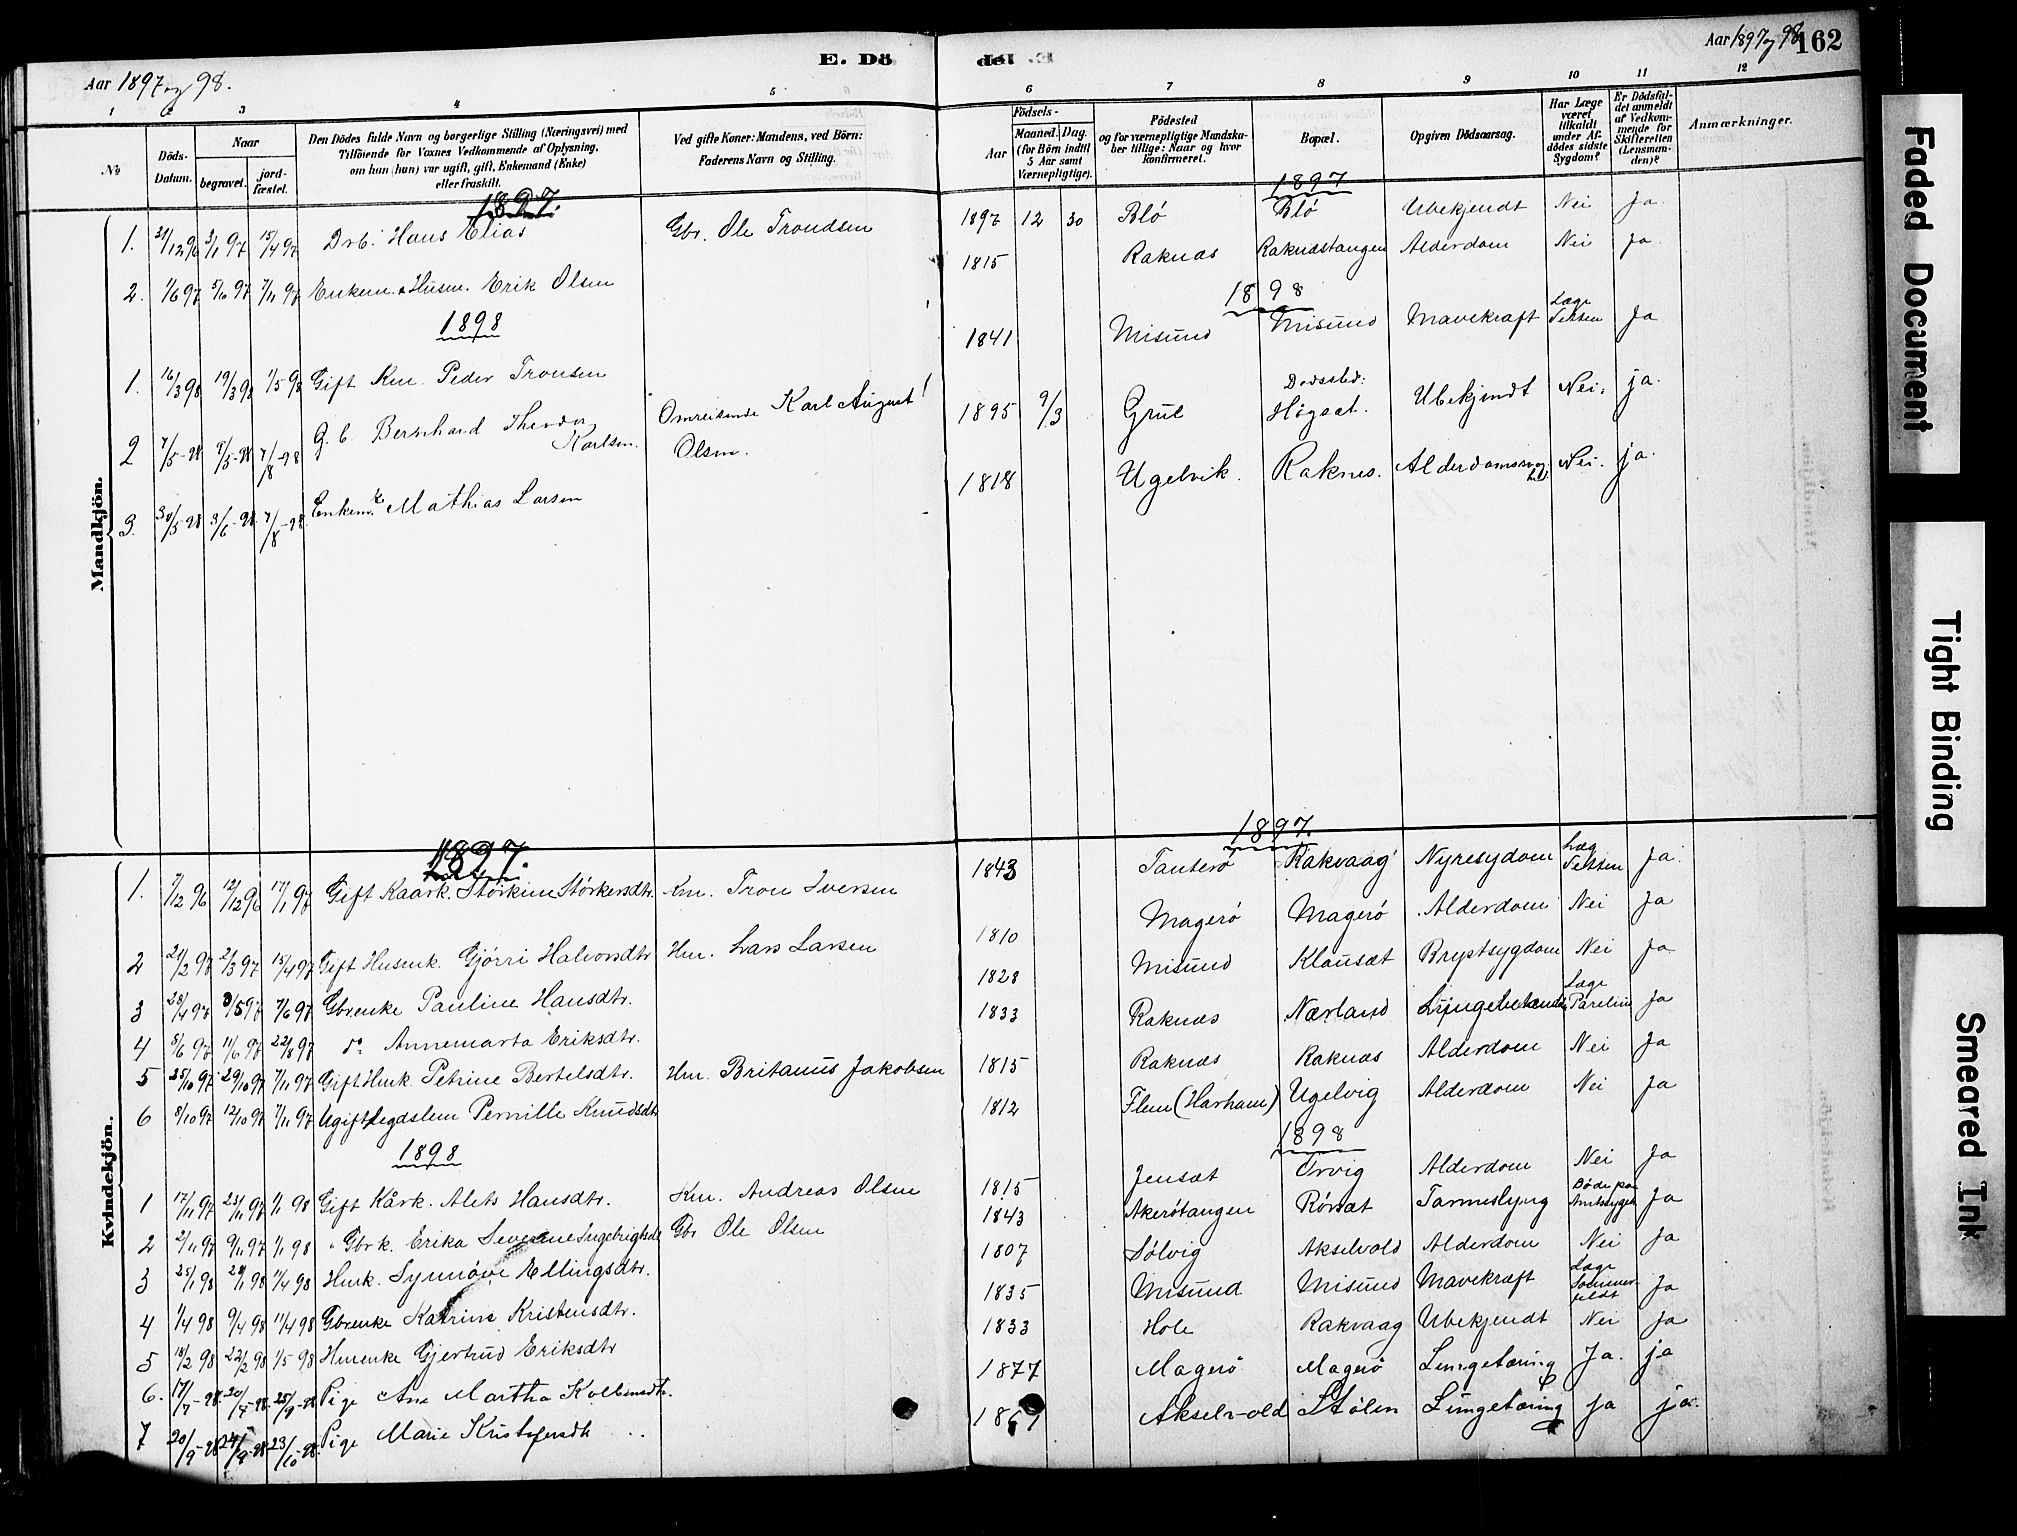 Aar 1897 og 98.
E. Dö
de. E.
Aar 1897 og 98
162
1 2 3 4 5 6 7 8 9 10 11 12
No
Döds-Datum.
Naar
begravet.
jord-fæstet.
Den Dödes fulde Navn og borgerlige Stilling (Næringsvei) med
Tilföiende for Voxnes Vedkommende af Oplysning,
om han (hun) var ugift, gift, Enkemand (Enke)
eller fraskilt.
Ved gifte Koner: Mandens, ved Börn:
Faderens Navn og Stilling.
Födsels-
Aar
Maaned. Dag.
(for Börn indtil
5 Aar samt
Værnepligtige).
Födested
og for værnepligtige Mandska-
ber tillige: Naar og hvor
konfirmeret.
Bopæl.
Opgiven Dödsaarsag.
Har Læge
været
tilkaldt
under Af-
dödes sidste
Sygdom?
Er Dödsfal-
det anmeldt
af Vedkom-
mende for
Skifteretten
(Lensman-
den)?
Anmærkninger.
Mandkjön.
1897. 1897
1. 31/12 96 3/1 97 15/4 97 Drb. Hans Elias Gbr. Ole Trondsen 1897 12 30 Blø Blø Ubekjendt Nei Ja.
2. 1/6 97 5/6 97 7/11 97 Enkem. Husm. Erik Olsen 1815 Raknæs Raknæstangen Alderdom Nei Ja
1898 1898
1. 16/3 98 19/3 98 1/5 98 Gift Km. Peder Tronsen 1841 Misund Misund Mavekræft Læge Ja
2 7/5-98 9/5-98 7/8-98 G. b. Bernhard Theodor Karlsen. Omreisende Karl August Olsen. 1895 9/3 Grue Dødssted: Høgset. Ubekjendt Nei. ja.
3. 30/5-98 3/6-98 7/8-98 Enkem. Mathias Larsen 1818 Ugelvik. Raknes. Nei. ja.
Kvindekjön.
1897. 1897.
1. 7/12 96 12/12 96 17/1 97 Gift Kaark. Størkine Størkersdtr. Km. Tron Iversen 1843 Tauterø Rakvaag Nyresydom Læg Ja.
2 21/2 97 2/3 97 15/4 97 Gift Husmk. Gjørri Halvorsdtr Hm. Lars Larsen 1810 Magerø Magerø Alderdom Nei Ja
3 28/4 97 /5 97 7/6 97 Gbrenke Pauline Hansdtr. 1828 Misund Klausæt Brystsygdom Nei Ja
4 5/6 97 11/6 97 22/8 97 do Annemarta Eriksdtr. 1833 Raknæs Nærland Læge Ja
5 25/10 97 29/10 97 7/11 97 Gift Hmk. Petrine Bertelsdtr. Hm. Britanus Jakobsen 1815 Raknæs Raknæs Alderdom Nei Ja
6 8/10 97 12/10 97 7/11 97 Ugift Legdslem Pernille Knudsdtr 1812 Flem (Harham) Ugelvig Alderdom Nei Ja
1898 1898
1 17/11 97 23/11 97 1/1 98 Gift Kårk. Alets Hansdtr. Km. Andreas Olsen 1815 Jensæt Orvig Alderdom Nei Ja
2 2/11 97 9/11 97 1/1 98 " Gbrk. Erika Severine Gbr Ole Olsen 1843 Akerøtangen Rørsæt Tarmeslyng Ja
3 25/1 98 29/1 98 11/4 98 Hmk. Synnøve Ellingsdtr. 1807 Sølvig Akselvold Alderdom Nei Ja
4 1/4 98 9/4 98 11/4 98 Gbrenke Katrine Kristensdtr. 1835 Misund Misund Mavekræft Læge Sommerfeldt Ja
5 18/2 98 23/2 98 1/5 98 Hmenke Gjertrud Eriksdtr 1833 Hole Rakvaag Ubekjendt Nei Ja
6. 17/7-98 20/7-98 25/9-98 Pige Ane Martha Kolbensdtr. 1877 Magerø Magerø Lungetæring Ja. ja
7 20/9-98 24/9-98 23/10-98. Pige Marie Akselvold Stølen Lungetæring Ja ja.
Faded Document
Tight Binding
Smeared Ink